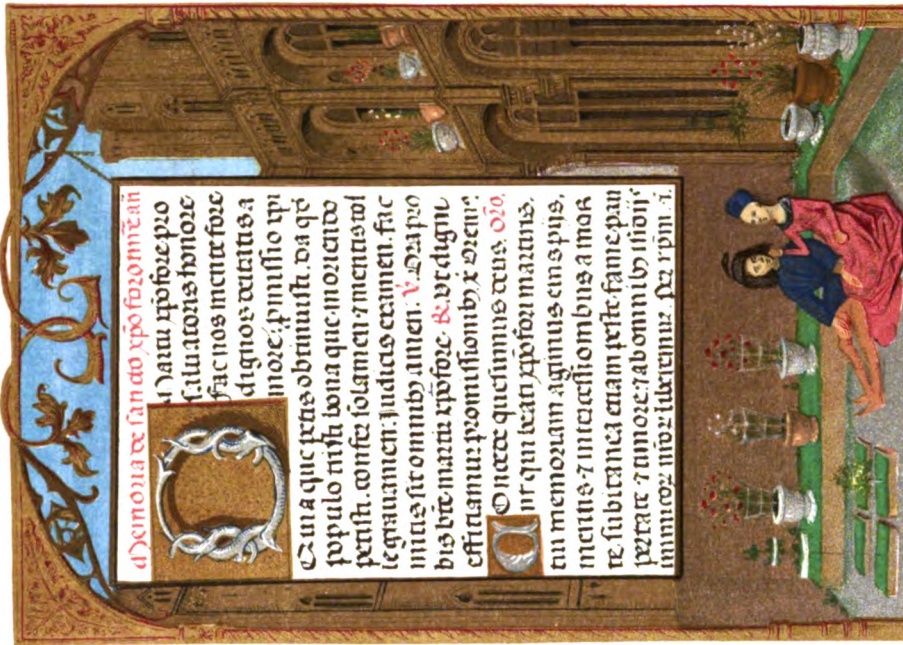 Memoria de sancto xp̄o foro mr̄e an
Martir xp̄ofore pro
saluatoris honore
fac nos mente fore
dignos deitatis a
more. promissio xp̄i
Quia que petis obtinuisti. da q̄
populo tristi. bona que moriendo
petisti. confer solamen. ⁊ mentis tol
le grauamen. Judicis examen. fac
mitis sit omnibꝰ amen. V. Ora pro
bis bt̄e martir xp̄ofore. R. vt digni
efficiamur promissionibꝰ x̄. Oremꝰ.
Concede quesumus deus. Oro.
vt qui beati xp̄ofori martiris.
tui memoriam agimus. eius piis.
meritis. ⁊ intercessionibus a mor
te subitanea etiam peste. fame. pau
pertate. ⁊ timore. ⁊ ab omnibꝰ
inimicor nr̄or liberemur. Per xp̄m.